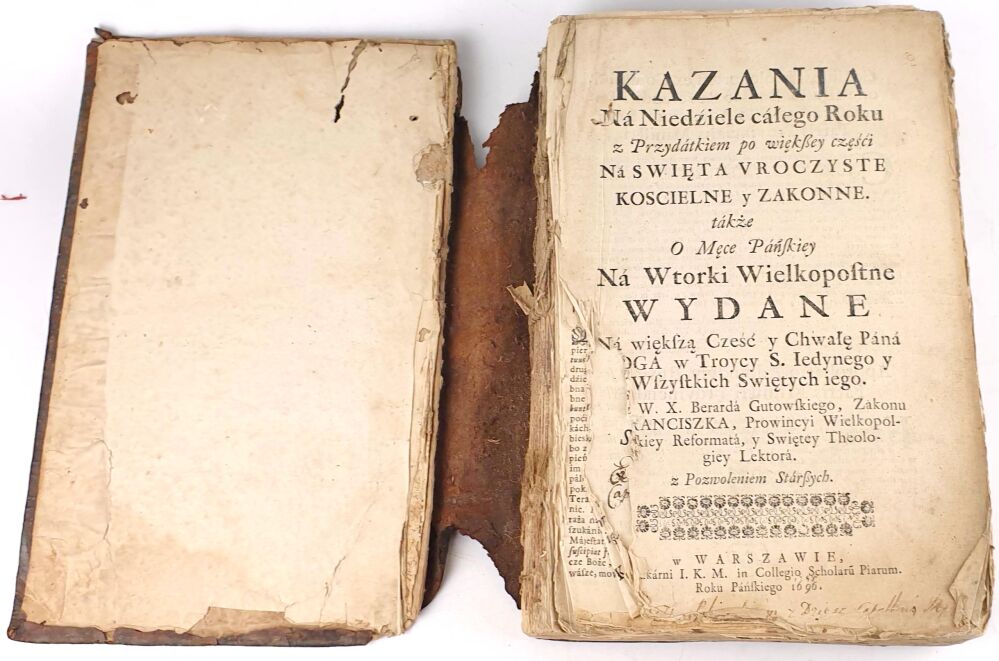 KAZANIA
Ná Niedźiele cáłego Roku
z Przydátkiem po większey częśći
Ná SWIĘTA VROCZYSTE
KOSCIELNE y ZAKONNE.
tákże
O Męce Páńſkiey
Ná Wtorki Wielkopoſtne
WYDANE
Ná większą Cześć y Chwałę Páná
OGA w Troycy S. Iedynego y
Wſzyſtkich Swiętych iego.
W. X. Berardá Gutowſkiego, Zakonu
RANCISZKA, Prowincyi Wielkopol-
ſkiey Reformatá, y Swiętey Theolo-
giey Lektorá.
z Pozwoleniem Stárſzych.
w WARSZAWIE,
kárni I. K. M. in Collegio Scholarũ Piarum.
Roku Páńſkiego 1696.
pier
drug
dźie
bna
bne
kách
bo z
im
pok
Tera
nie.
Májeſtat
ſuſcipiat
cze Boże
wáſze, mo